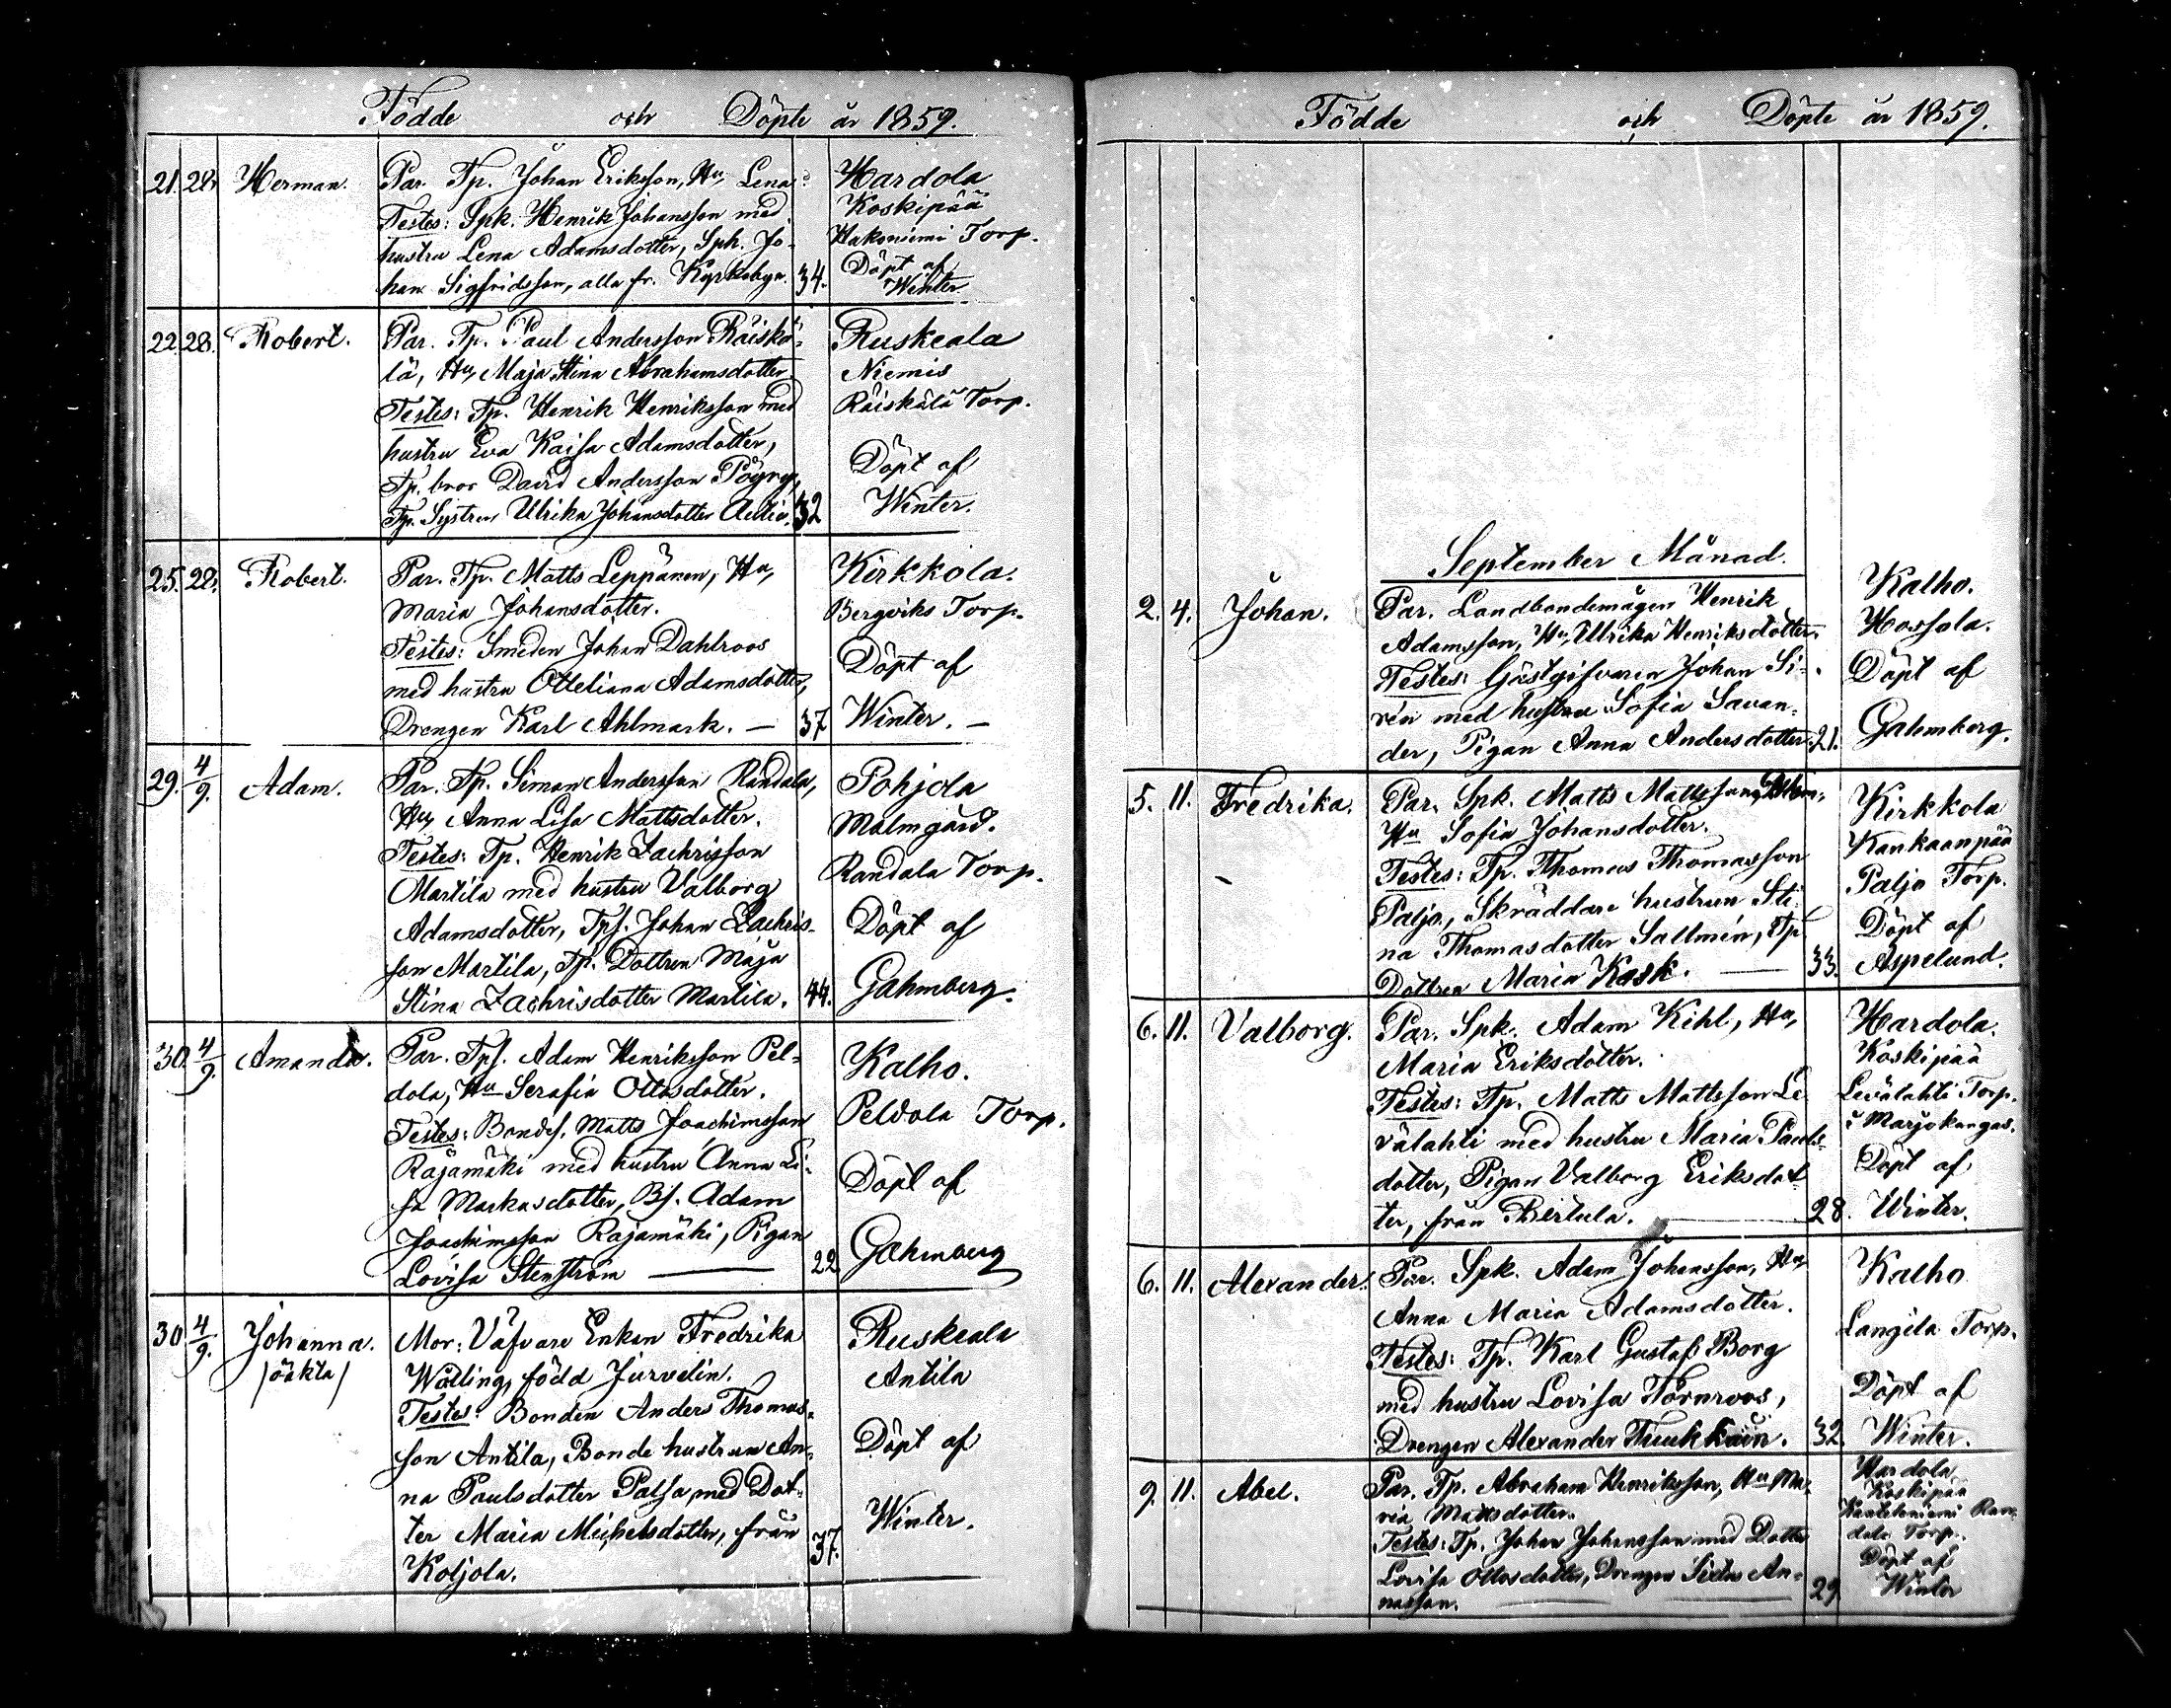 Födde och Döpte år 1859.
21. 28. Herman. Par. Tp. Johan Eriksson, Hu, Lena Hardola
Testes: Spk. Henrik Johansson med Koskipää
hustru Lena Adamsdotter, Spk. Jo- Hakoniemi Torp.
han Sigfridsson, alla fr. Kyrkobyn. 34. Döpt af
Winter.
22. 28. Robert. Par. Tp. Paul Andersson Räiskä- Ruskeala
lä, Hu, Maja Stina Abrahamsdotter. Niemis
Testes: Tp. Henrik Henriksson med Räiskälä Torp.
hustru Eva Kaisa Adamsdotter, Döpt af
Tp. bror David Andersson Pöyry,
Tp. Systren Ulrika Johansdotter Autio. 32 Winter.
25. 28. Robert. Par. Tp. Matts Leppänen, Hu, Kirkkola.
Maria Johansdotter. Bergviks Torp.
Testes: Smeden Johan Dahlroos Döpt af
med hustru Otteliana Adamsdotter,
Drengen Karl Ahlmark. — 37 Winter. —
29. 4/9. Adam. Par. Tp. Simon Andersson Randala, Pohjola
Hu, Anna Lisa Mattsdotter. Malmgård.
Testes: Tp. Henrik Zachrisson Randala Torp.
Martila med hustru Valborg
Adamsdotter, Tps. Johan Zachris- Döpt af
son Martila, Tp. Dottren Maja
Stina Zachrisdotter Martila. 44. Gahmberg.
30. 4/9. Amanda. Par. Tps. Adam Henriksson Pel- Kalho.
dola, Hu Serafia Ottosdotter. Peldola Torp.
Testes: Bondes. Matts Joachimsson
Rajamäki med hustru Anna Li- Döpt af
sa Markusdotter, Bs. Adam
Joachimsson Rajamäki, Pigan
Lovisa Stenström — 22 Gahmberg
30 4/9. Johanna. Mor: Väfvare Enkan Fredrika Ruskeala
/oäkta/ Wälling, född Jurvelin. Antila
Testes: Bonden Anders Thomas-
son Antila, Bonde hustrun An- Döpt af
na Paulsdotter Palsa, med Dot-
ter Maria Michelsdotter, från 37. Winter.
Koljola.
Födde och Döpte år 1859.
September Månad.
2. 4. Johan. Par. Landbondemågen Henrik Kalho.
Adamsson, Hu, Ulrika Henriksdotter. Hossola.
Testes: Gästgifvaren Johan Si- Döpt af
rén med hustru Sofia Savan-
der, Pigan Anna Andersdotter. 21. Gahmberg.
5. 11. Fredrika. Par. Spk. Matts Mattsson Kirkkola
Hu Sofia Johansdotter. Kankaanpää
Testes: Tp. Thomas Thomasson Paljo Torp.
Paljo, Skräddare hustrun Sti- Döpt af
na Thomasdotter Sallmén, Tp
Dottren Maria Kask. — 33. Aspelund.
6. 11. Valborg. Par. Spk. Adam Kihl, Hu, Hardola.
Maria Eriksdotter. Koskipää
Testes: Tp. Matts Mattsson Le- Levälahti Torp.
välahti med hustru Maria Pauls- i Marjokangas.
dotter, Pigan Valborg Eriksdot- Döpt af
ter, från Pertula. — 28. Winter.
6. 11. Alexander. Par. Spk. Adam Johansson, Hu, Kalho
Anna Maria Adamsdotter. Langila Torp.
Testes: Tp. Karl Gustaf Borg
med hustru Lovisa Törnroos, Döpt af
Drengen Alexander 32. Winter.
9. 11. Abel. Par. Tp. Abraham Henriksson, Hu Ma- Hardola
ria Mattsdotter. Koskipää
Testes: Tp. Johan Johansson med Dotter Ran-
Lovisa Ottosdotter, Drengen An- dala Torp.
nasson. — 29 Döpt af
Winter